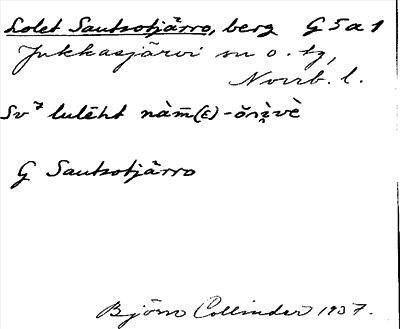 Lolet Sautsotjårro, berg G5a1
Jukkasjärvi sn o. tg,
Norrb. l.
Sv⁷ luleht
G Sautsotjårro
Björn Collinder 1937.